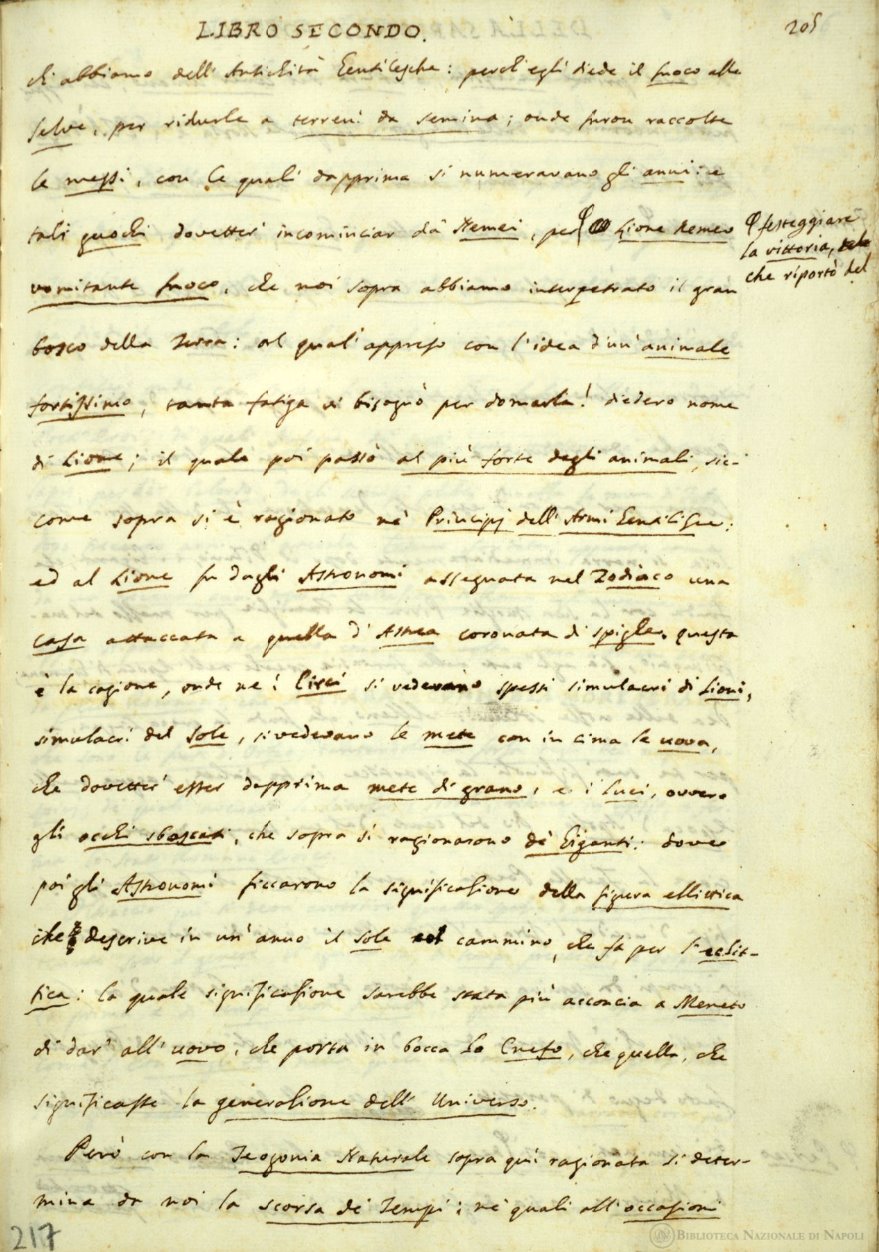 LIBRO SECONDO.
205
ch'abbiamo dell'Antichità Gentilesche: perch'egli diede il fuoco alle
selve, per ridurle a terreni da semina; onde furon raccolte
le messi, con le quali dapprima si numeravano gli anni: e
tali giuochi dovetter' incominciar da' Nemei, per Lione Nemeo
φ festeggiare
la vittoria,
che riportò del
vomitante fuoco, che noi sopra abbiamo interpetrato il gran
bosco della Terra: al qual'appreso con l'idea d'un'animale
fortissimo, tanta fatiga vi bisognò per domarla! diedero nome
di Lione; il quale poi passò al più forte degli animali, sic-
come sopra si è ragionato ne' Principj dell'Armi Gentilizie:
ed al Lione fu dagli Astronomi assegnata nel Zodiaco una
casa attaccata a quella d'Astrea coronata di spighe. questa
è la cagione, onde ne' Circi si vedevano spessi simulacri di Lioni,
simulacri del Sole, si vedevano le mete con in cima le uova,
che dovetter' esser dapprima mete di grano, e i Luci, ovvero
gli occhi sboscati, che sopra si ragionarono de' Giganti: dove
poi gli Astronomi ficcarono la significazione della figura ellittica
che descrive in un'anno il Sole col cammino, che fa per l'eclit-
tica: la quale significazione sarebbe stata più acconcia a Maneto
di dar' all'uovo, che porta in bocca lo Cnefo, che quella, che
significasse la generazione dell'Universo.
Però con la Teogonia Naturale sopra quì ragionata si deter-
mina da noi la scorsa de' Tempi; ne' quali all'occasioni
217
BIBLIOTECA NAZIONALE DI NAPOLI